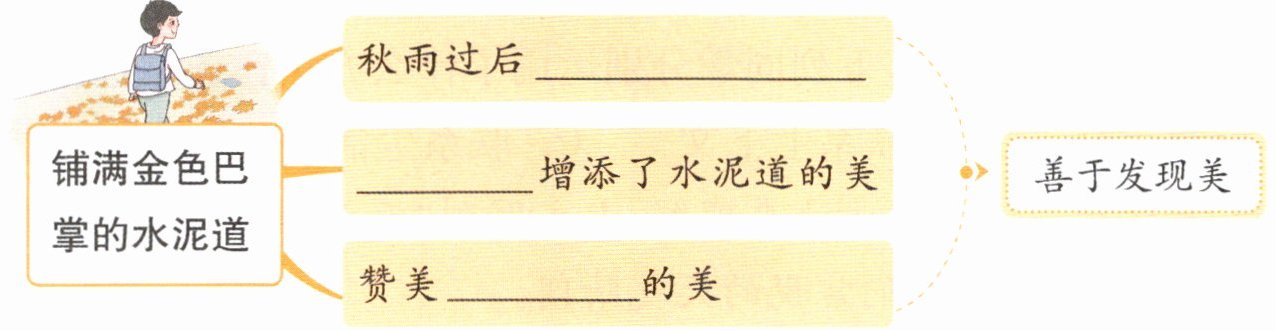 铺满金色巴
掌的水泥道
秋雨过后____________
________增添了水泥道的美
赞美________的美
善于发现美